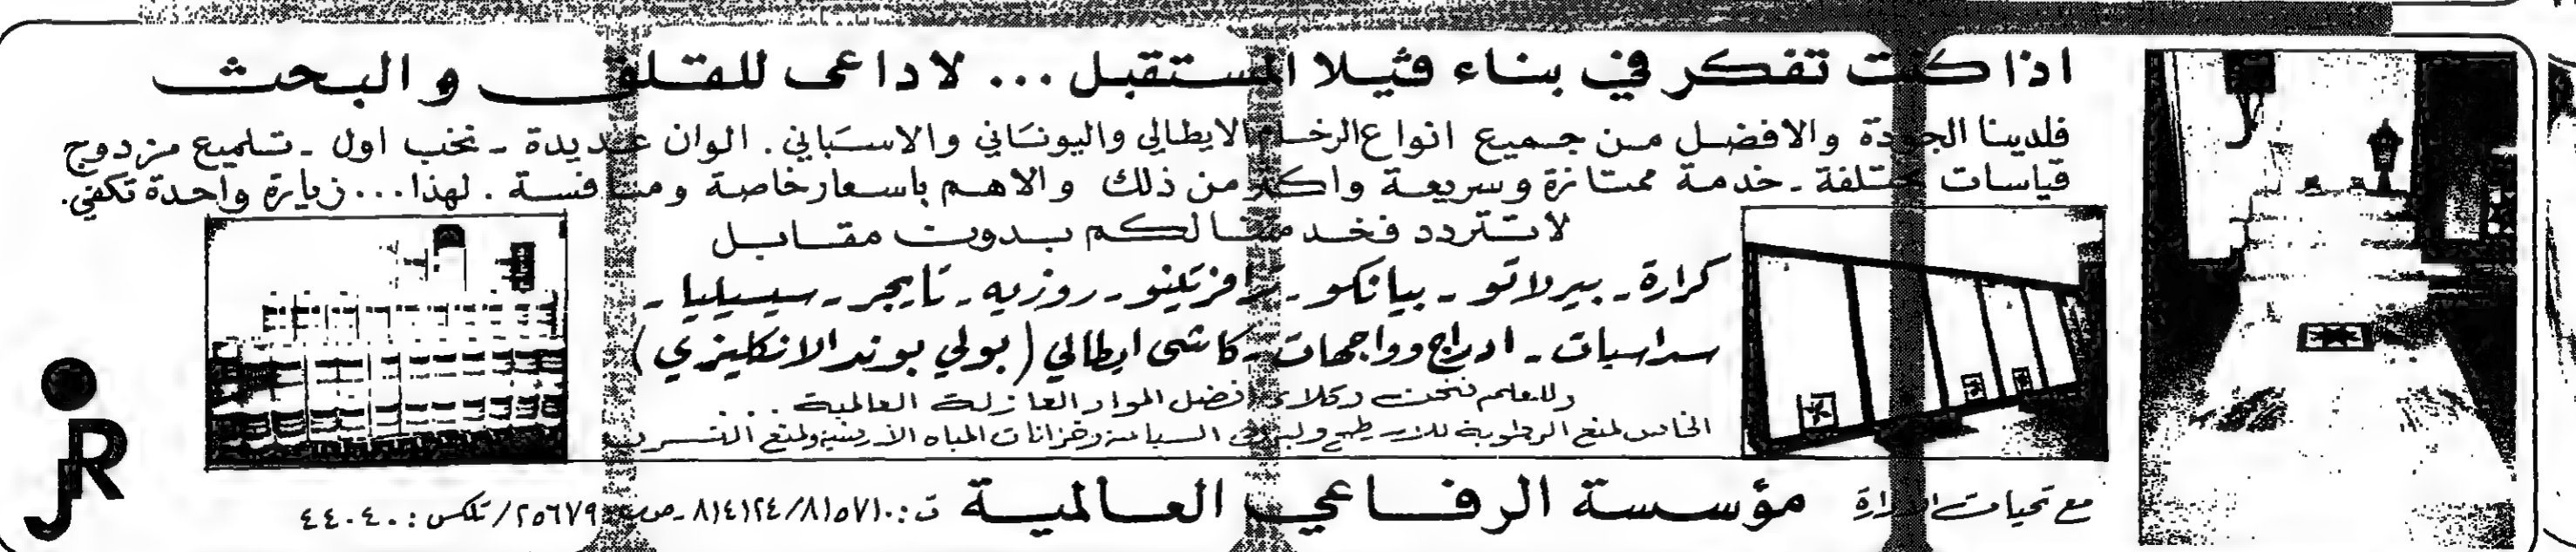 اذا كنت تفكر في بناء ڤيلا المستقبل ... لا داعى للقلق والبحث
فلدينا الجودة والافضل من جميع انواع الرخام الايطالي واليوناني والاسباني . الوان عديدة - نخب اول - تلميع مزدوج
قياسات مختلفة - خدمة ممتازة وسريعة واكثر من ذلك والاهم باسعار خاصة ومنافسة . لهذا ... زيارة واحدة تكفي .
لا تتردد فخدمتنا لكم بدون مقابل
كرارة - بيرلاتو - بيانكو - ترافرتينو - روزيه - تايجر - سيسيليا -
سداسيات - ادراج وواجهات - كاشى ايطالي ( بولي بوند الانكليزي )
وللعلم فنحن وكلاء افضل المواد العازلة العالمية ...
الخاص لمنع الرطوبة للاسطح ولبرك السباحة وخزانات المياه الارضية ولمنع التسرب
مع تحيات ادارة مؤسسة الرفاعي العالمية ت : ٨١٤١٢٤/٨١٥٧١٠ - ص ب ٢٥٦٧٩ / تلكس : ٤٤٠٤٠
JR